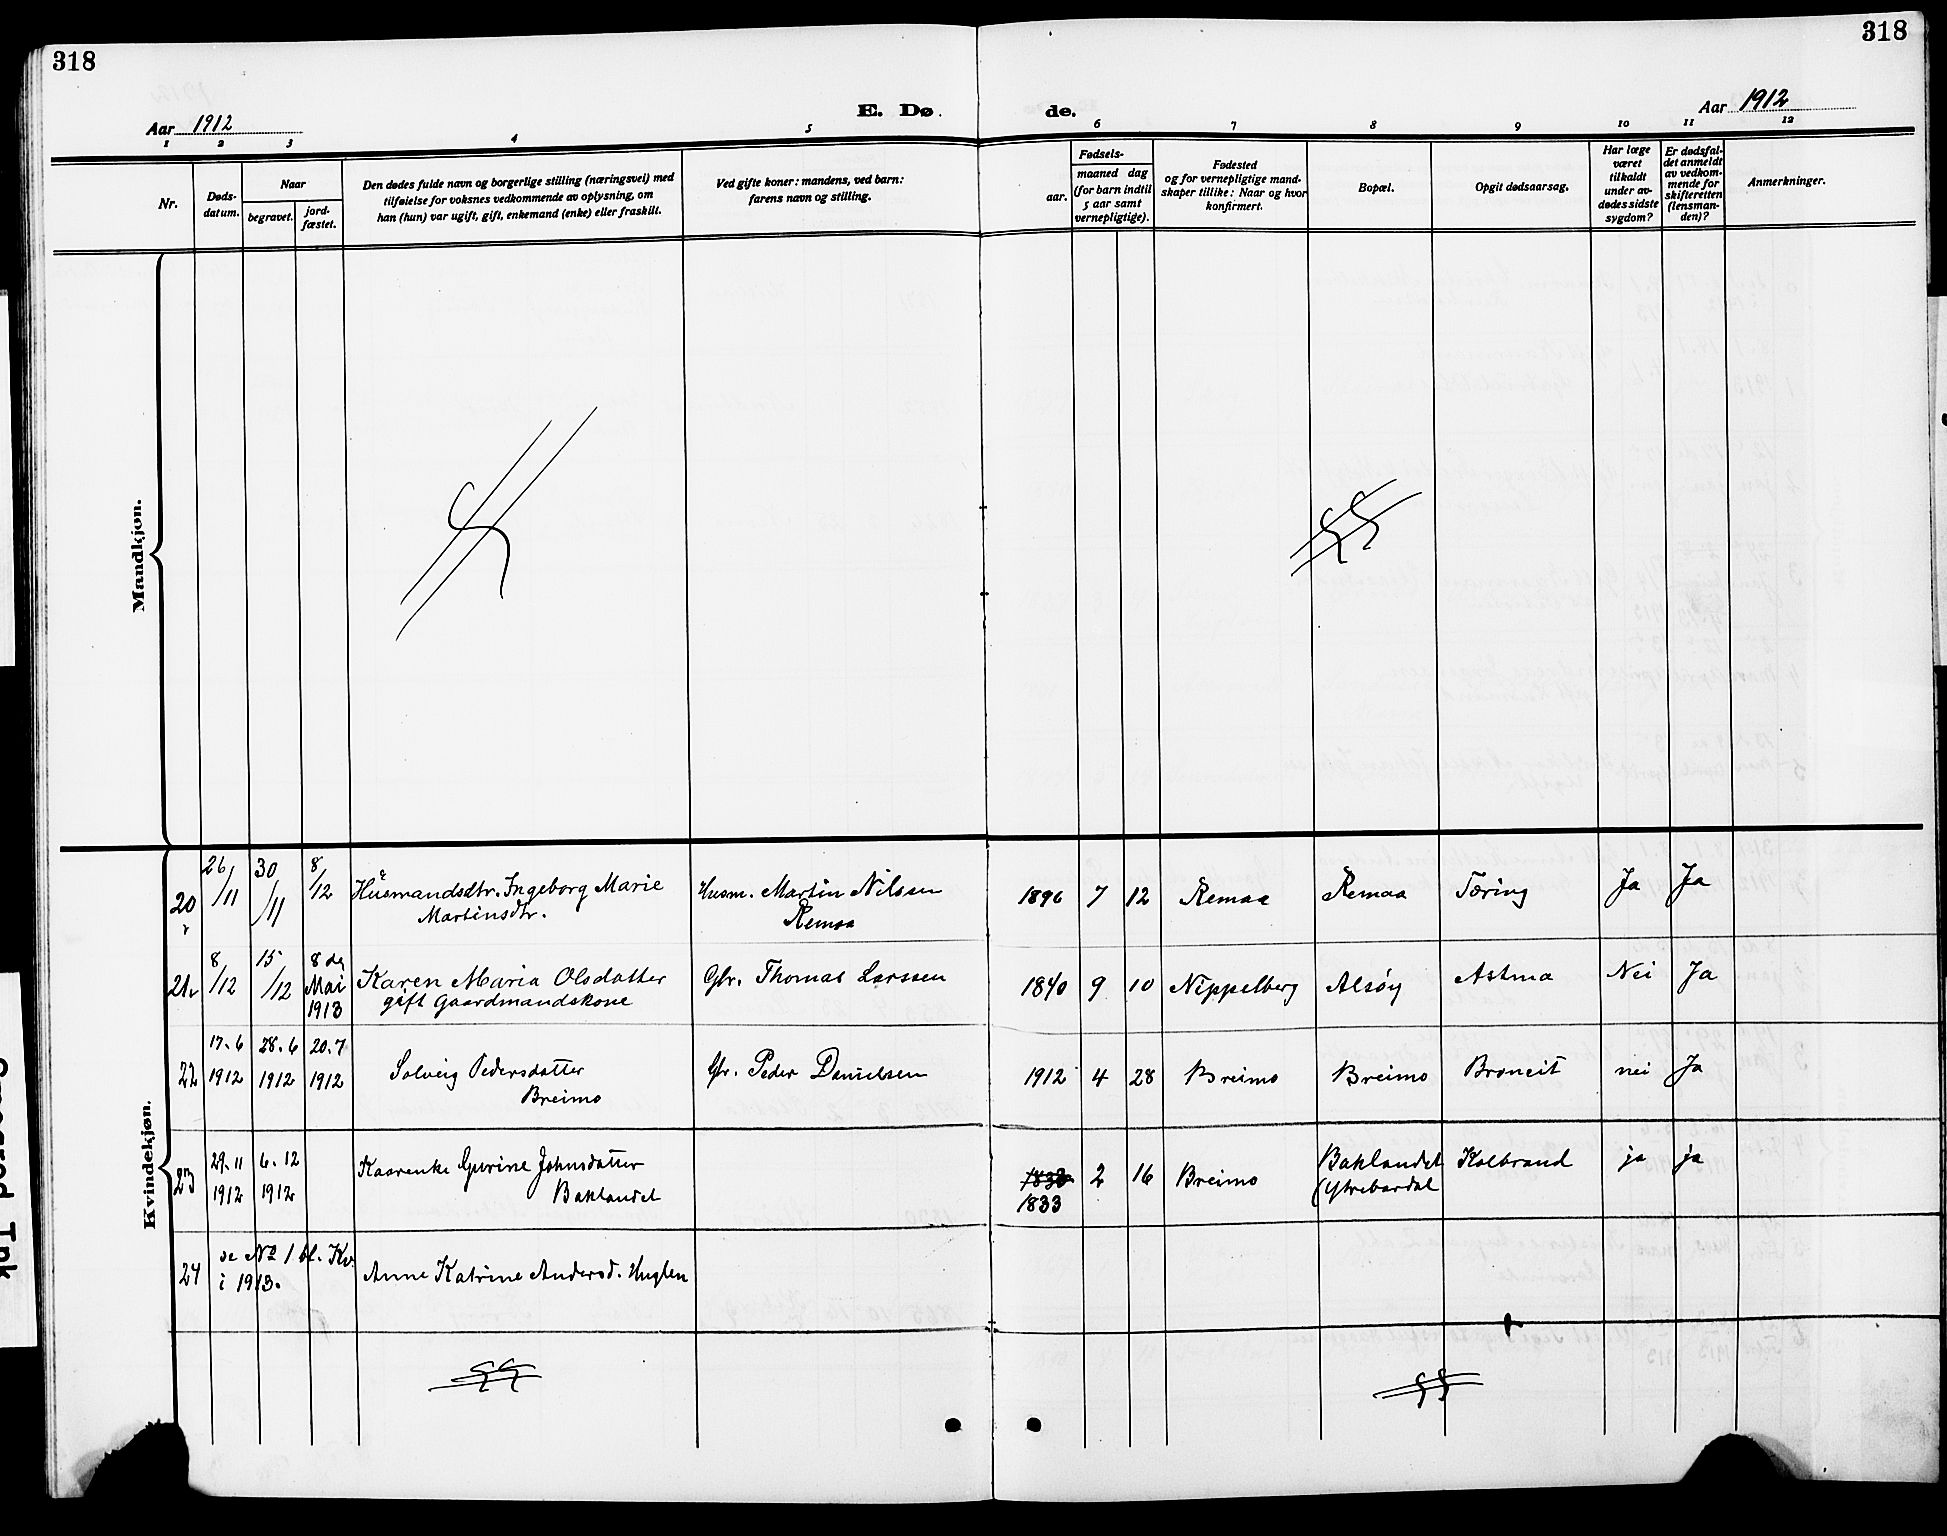 318
318
Aar 1912
E. Dø
de.
Aar 1912
1 2 3 4 5 6 7 8 9 10 11 12
Nr.
Døds-
datum.
Naar
begravet.
jord-
fæstet.
Den dødes fulde navn og borgerlige stilling (næringsvei) med
tilføielse for voksnes vedkommende av oplysning, om
han (hun) var ugift, gift, enkemand (enke) eller fraskilt.
Ved gifte koner: mandens, ved barn:
farens navn og stilling.
Fødsels-
aar.
maaned dag
(for barn indtil
5 aar samt
vernepligtige).
Fødested
og for vernepligtige mand-
skaper tillike: Naar og hvor
konfirmert.
Bopæl.
Opgit dødsaarsag.
Har læge
været
tilkaldt
under av-
dødes sidste
sygdom?
Er dødsfal-
det anmeldt
av vedkom-
mende for
skifteretten
(lensman-
den)?
Anmerkninger.
Mandkjøn.
Kvindekjøn.
20 26/11 30/11 8/12 Husmandsdtr. Ingeborg Marie Husm. Martin Nilssen 1896 7 12 Remaa Remaa Tæring Ja Ja
Martinsdtr. Remaa
21 8/12 15/12 8 de Karen Maria Olsdatter Gbr. Thomas Larssen 1840 9 10 Nippelberg Alsøy Astma Nei Ja
Mai gift Gaardmandskone
1913
22 17.6 28.6 20.7 Solveig Pedersdatter Gbr. Peder Danielsen 1912 4 28 Breimo Breimo Broncit nei Ja
1912 1912 1912 Breimo
23 29.11 6.12 Kaarenke Gurine Johnsdatter 1832 2 16 Breimo Baklandet Kolbrand ja ja
1912 1912 Baklandet 1833 (Ytrebardal
24 se No 1 bl. Kv. Anne Katrine Andersd. Huglen
i 1913.